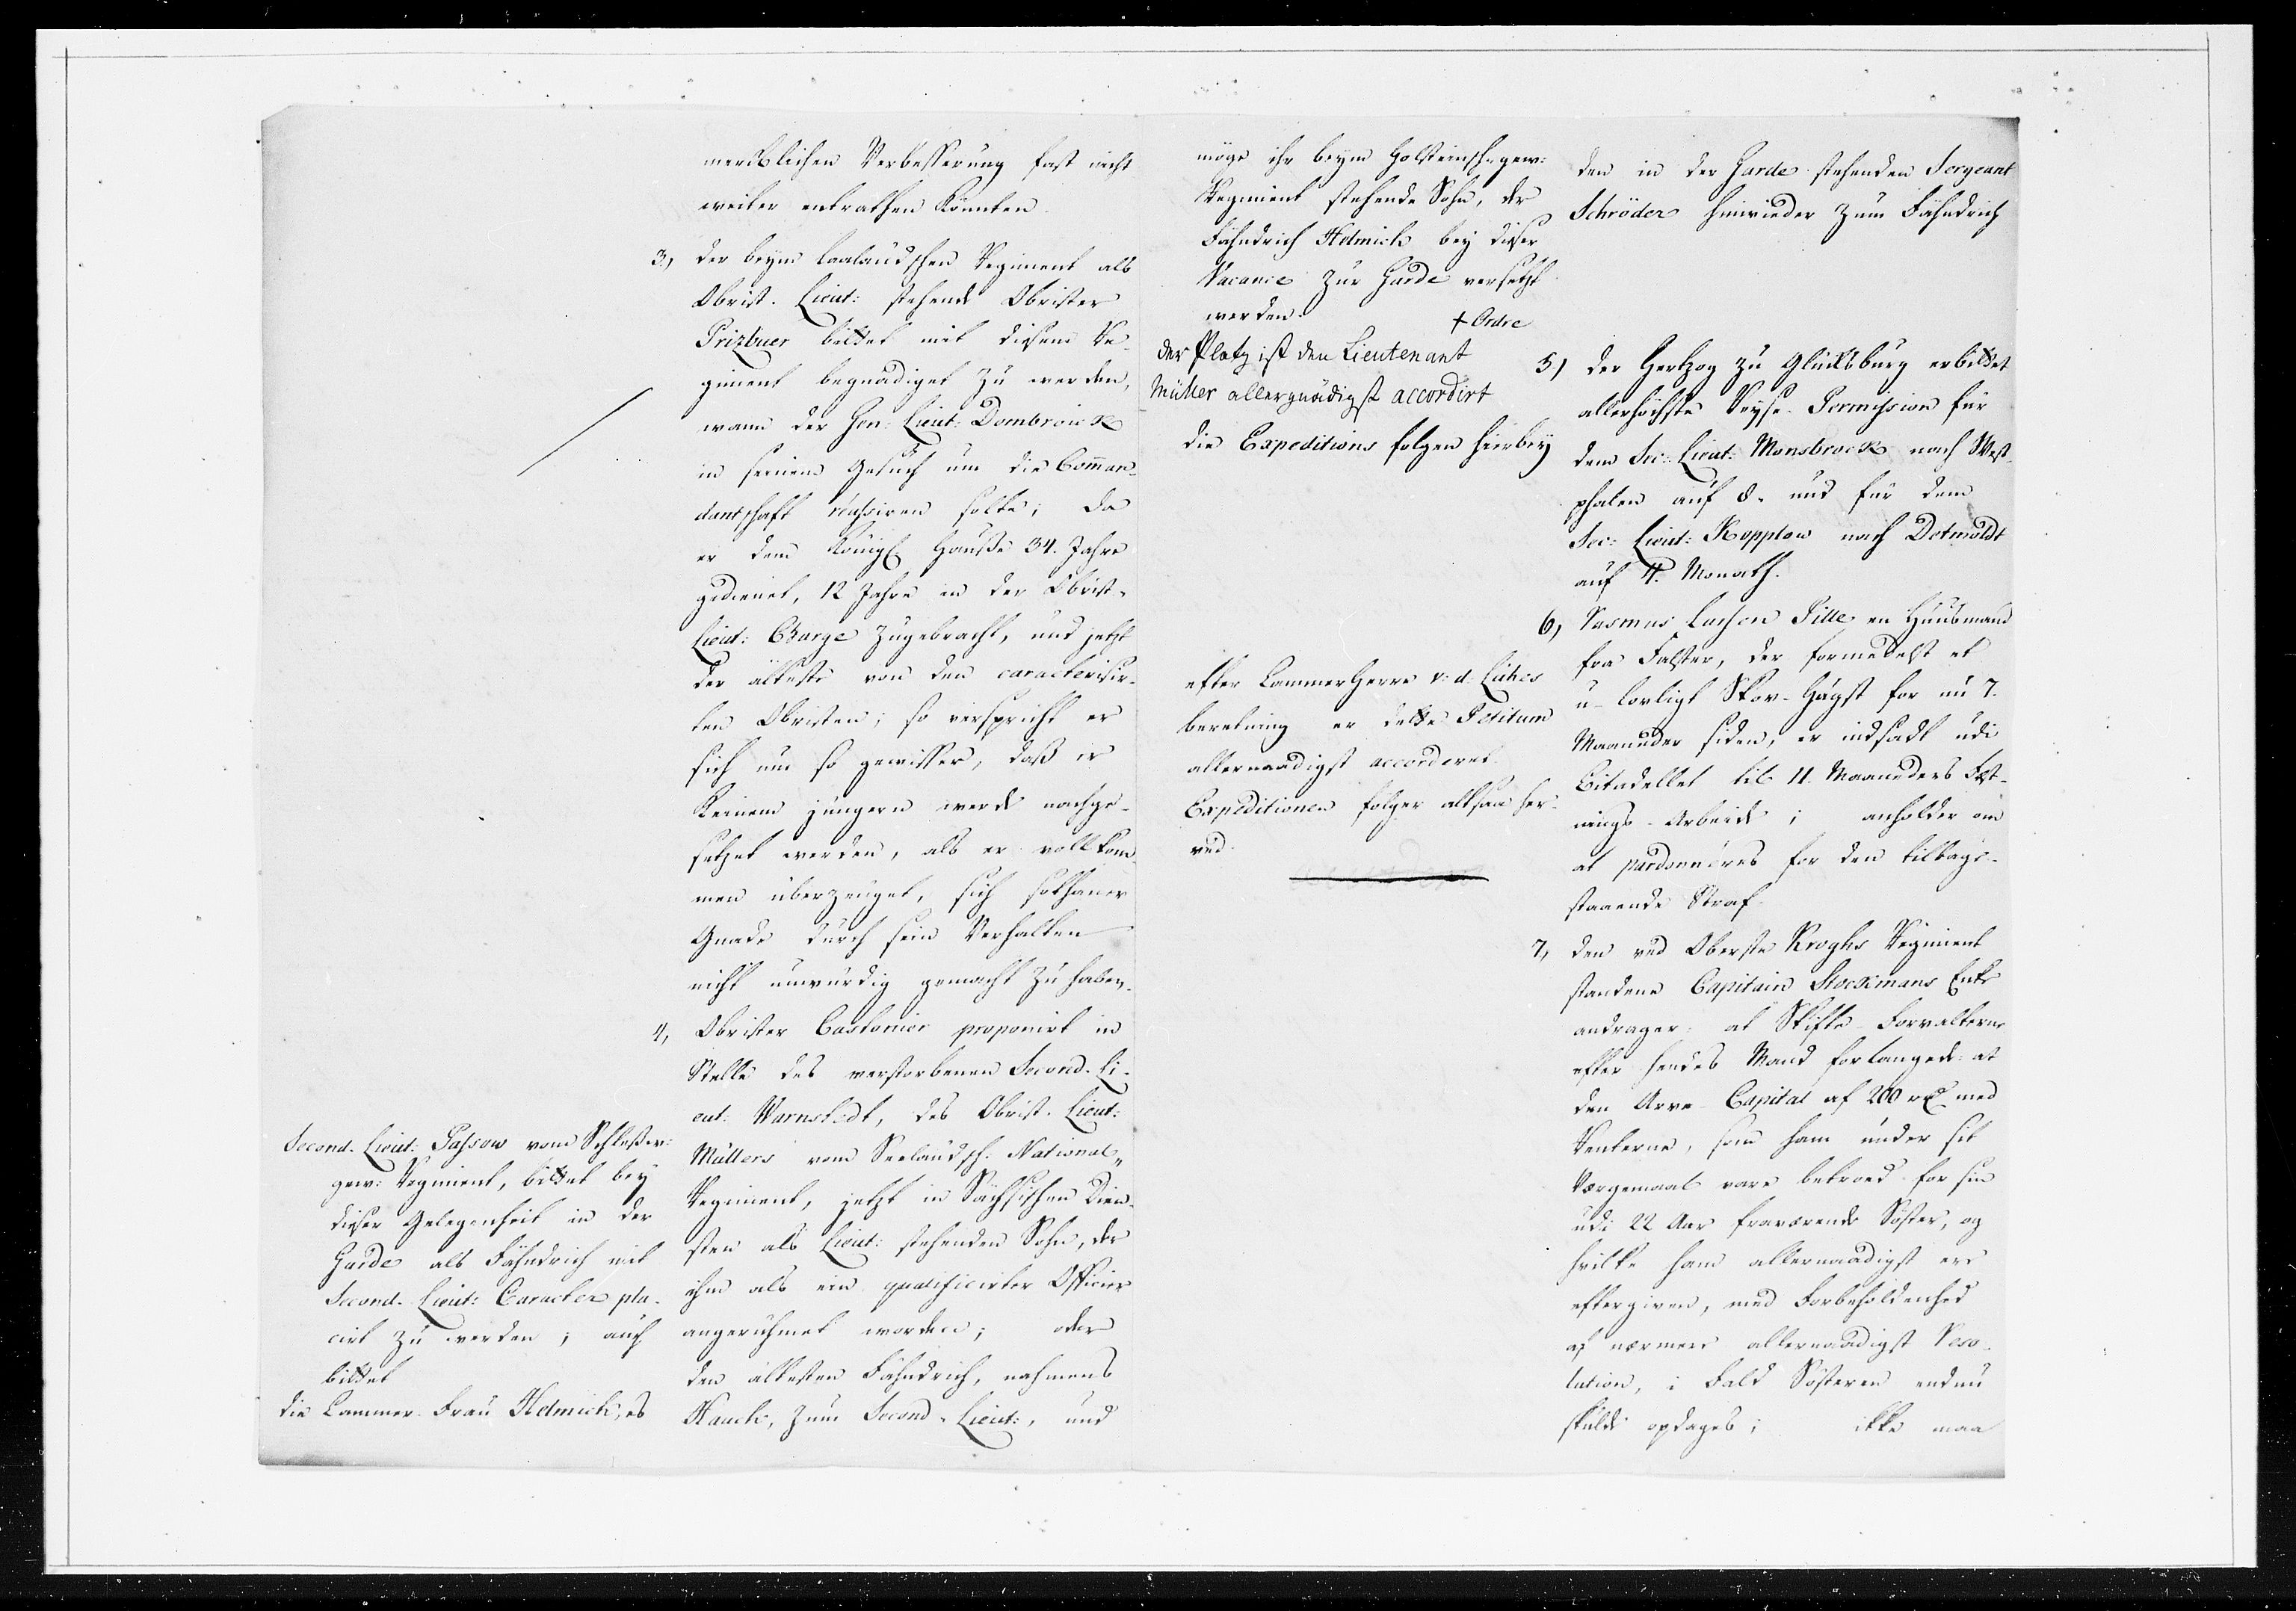 merklichen Verbesserung fast nicht
weiter entrathen könnten.
3.) der beym Laalandschen Regiment als
Obrist. Lieut: stehende Obrister
Prizbuer bittet mit diesem Re-
giment begnadiget zu werden,
wann der Gen: Lieut: Dombroick
in seinem Gesuch um die Comman-
dantschaft réussiren solte; da
er dem Königl. Hausse 34. Jahre
gedienet, 12 Jahre in der Obrist-
Lieut: Charge zugebracht, und jetzt
der älteste von den caracterisir-
ten Obristen; so verspricht er
sich um so gewisser, daß er
keinem jüngern werde nachge-
setzet werden, als er vollkom-
men überzeuget, sich sothaner
Gnade durch sein Verhalten
nicht unwürdig gemacht zu haben.
4, Obrister Castonier proponirt in
Stelle des verstorbenen Second-Li-
eut: Warnstedt, des Obrist-Lieut:
Müllers vom Seelandsch. National-
Regiment, jetzt in Sächsischen Dien-
sten als Lieut: stehenden Sohn, der
ihm als ein qualificirter Officier
angerühmet worden; oder
den ältesten Fähndrich, nahmens
Hauch, zum Second-Lieut:, und
Second-Lieut: Passow vom Schleßw:
gew: Regiment, bittet bey
dieser Gelegenheit in der
Garde als Fähndrich mit
Second-Lieut: Caracter pla-
cirt zu werden; auch
bittet
die Cammer-Frau Helmich, es
möge ihr beym Holsteinsch. gew:
Regiment stehende Sohn, der
Fähndrich Helmich bey dieser
Vacance zur Garde versetzt
werden.
+ Ordre
der Platz ist den Lieutenant
Müller allergnädigst accordirt
die Expeditions folgen hierbey
efter Cammerherre v: d: Lühes
beretning er dette Petitum
allernaadigst accorderet.
Expeditionen følger altsaa her-
ved.
den in der Garde stehenden Sergeant
Schröder hinwieder zum Fähndrich
5.) der Hertzog zu Glücksburg erbittet
allerhöchste Reyse-Permission für
dem Sec: Lieut: Monsbrock nach West-
phalen auf 8- und für dem
Sec: Lieut: Kopplow nach Detmoldt
auf 4. Monath.
6, Rasmus Larsen Pille en Huusmand
fra Falster, der formedelst et
u-lovligt Skov-Hugst for nu 7.
Maaneder siden, er indsadt udi
Citadellet til 11. Maaneders Fæst-
nings-Arbeide; anholder om
at pardonnéres for den tilbage-
staaende Straf.
7, den ved Oberste Kroghs Regiment
standene Capitain Stockmans Enke
andrager: at Skifte-Forvalterne
efter hendes Mand forlangede at
den Arve-Capital af 200 rd med
Renterne, som ham under sit
Værgemaal vare betroed for sin
udi 22 Aar fraværende Søster, og
hvilke ham allernaadigst ere
eftergiven, med Forbeholdenhed
af nærmere allernaadigst Reso-
lution, i Fald Søsteren endnu
skulde opdages; ikke maa